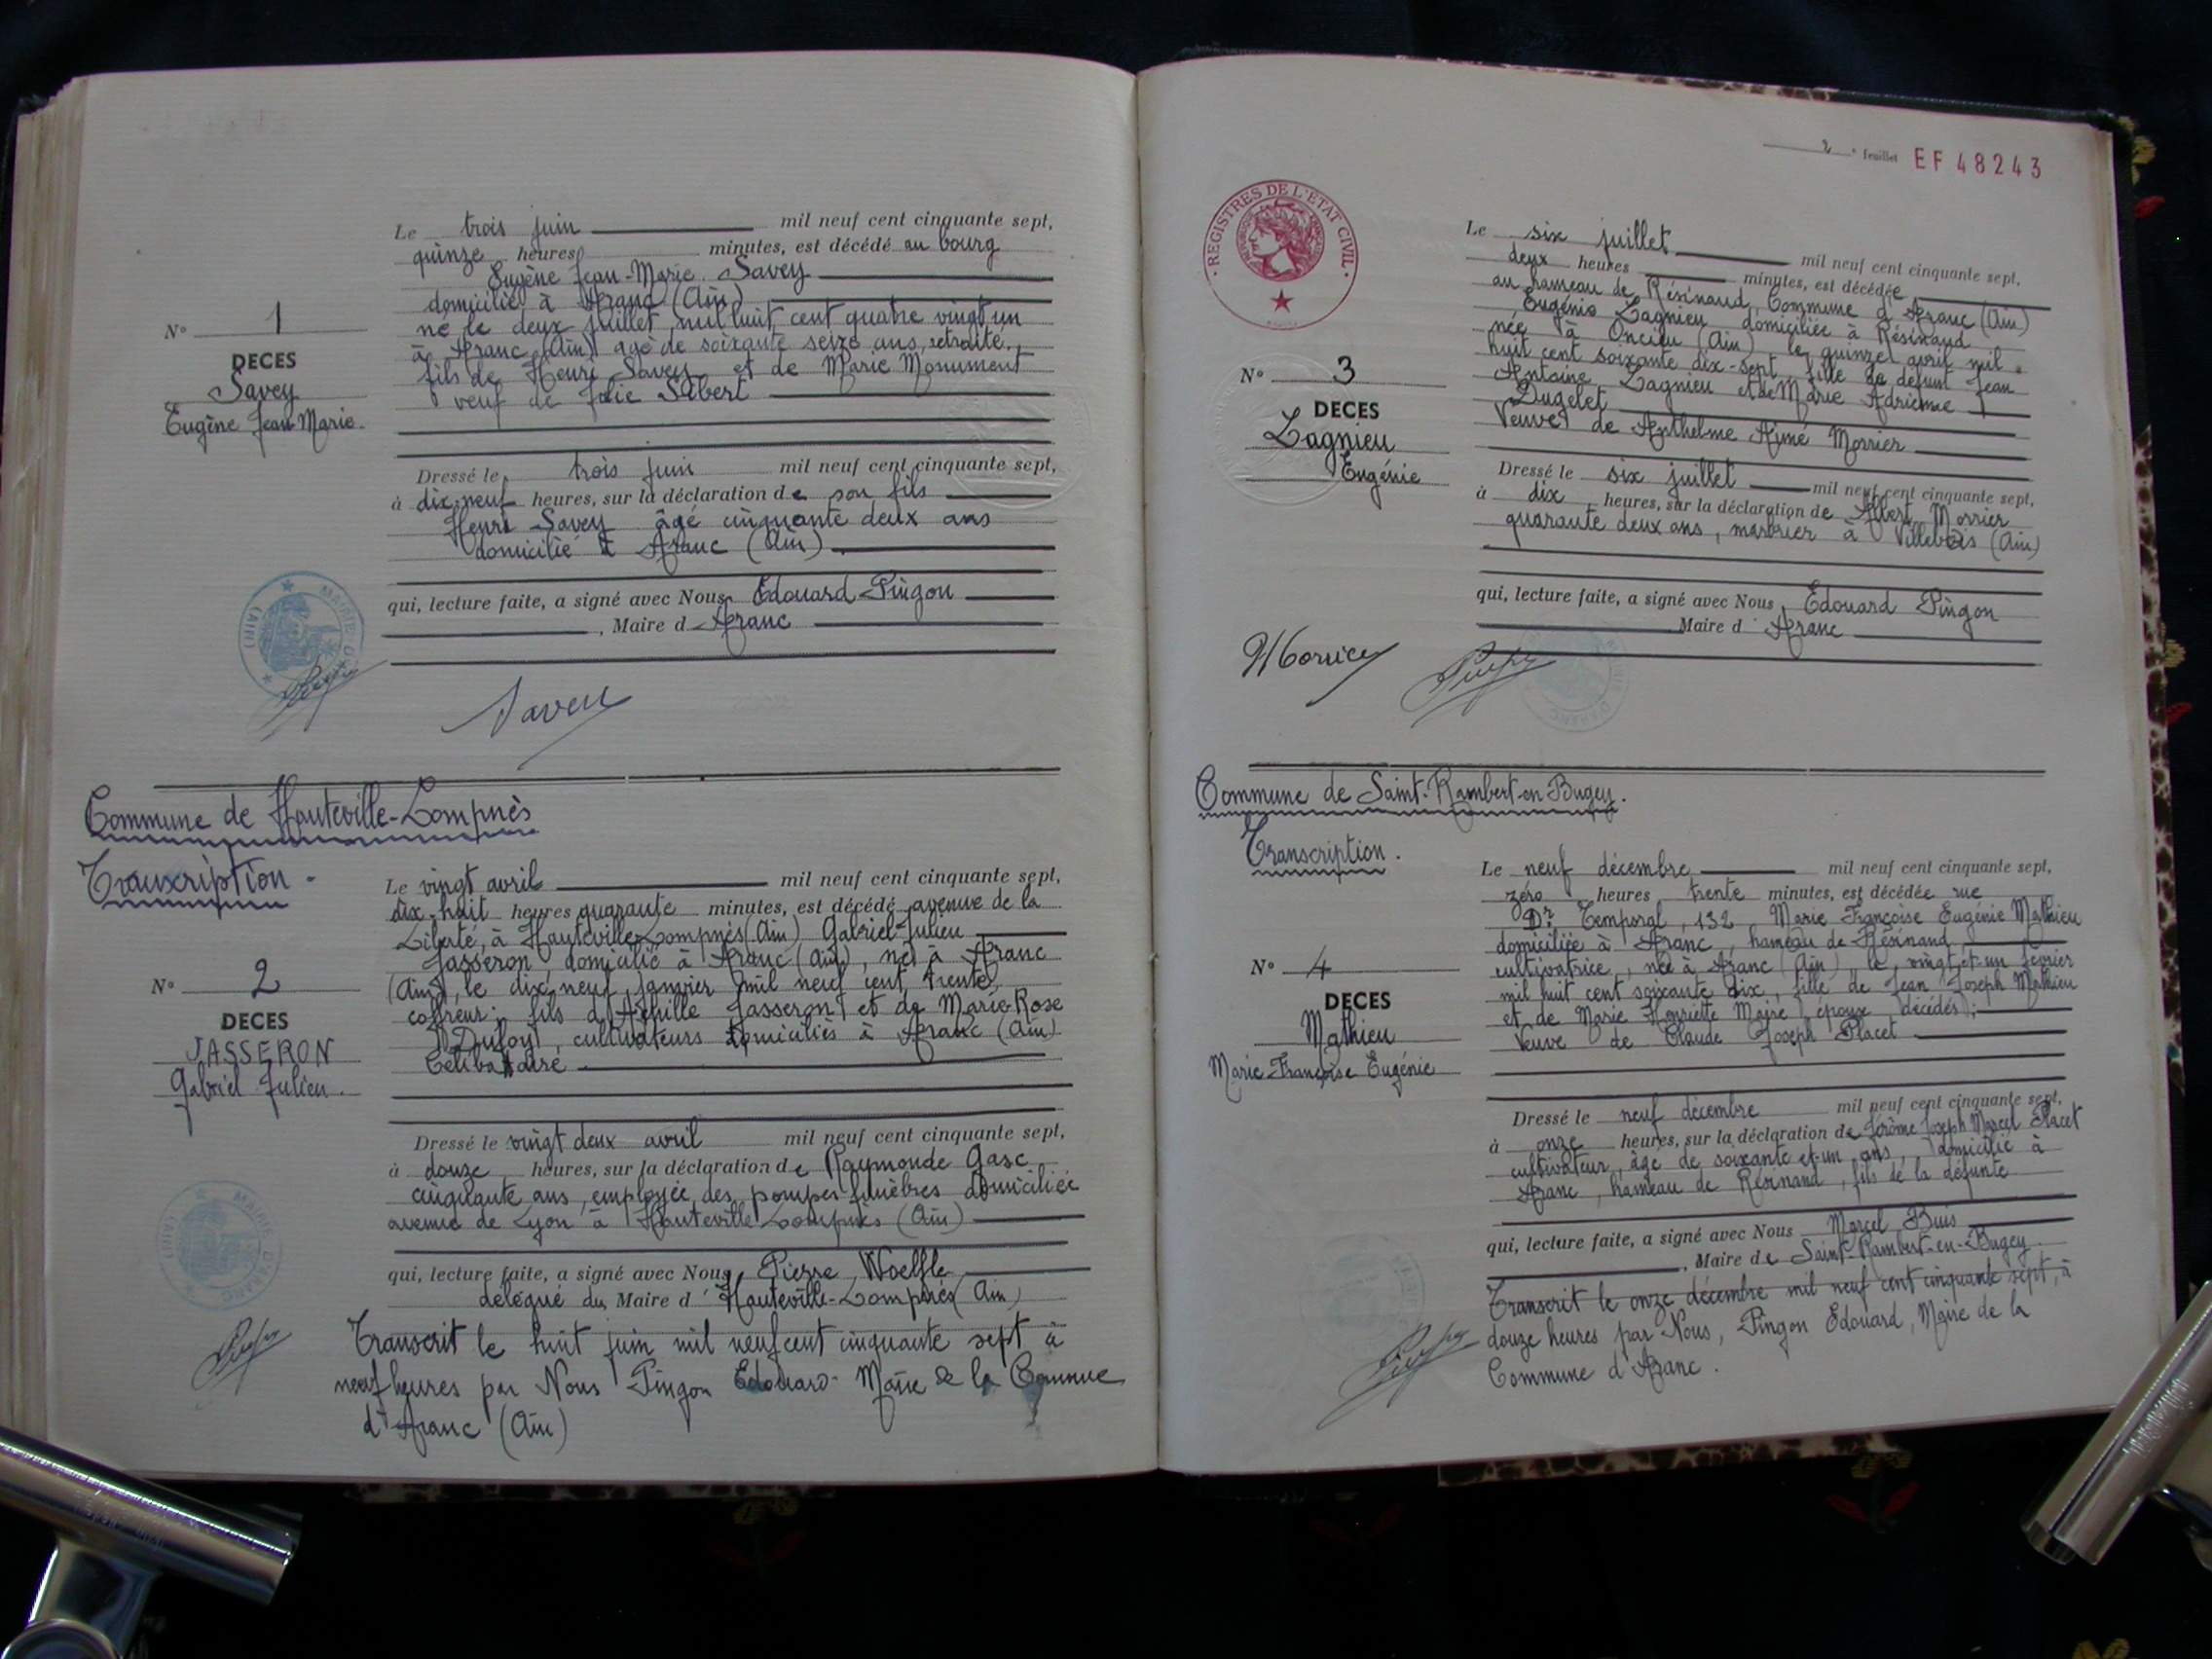 Le trois juin mil neuf cent cinquante sept,
quinze heures minutes, est décédé au bourg
Eugène Jean-Marie Savey
domicilié à Aranc (Ain)
né le deux juillet mil huit cent quatre vingt un
à Aranc (Ain) agé de soixante seize ans, retraité,
fils de Henri Savey et de Marie Monument
veuf de Julie Sibert
N° 1
DECES
Savey
Eugène Jean Marie.
Dressé le trois juin mil neuf cent cinquante sept,
à dix-neuf heures, sur la déclaration de son fils
Henri Savey âgé cinquante deux ans
domicilié à Aranc (Ain).
qui, lecture faite, a signé avec Nous, Edouard Pingon
, Maire d Aranc
Savey
Commune de Hauteville-Lompnès
Transcription -
Le vingt avril mil neuf cent cinquante sept,
dix-huit heures quarante minutes, est décédé avenue de la
Liberté, à Hauteville-Lompnès (Ain) Gabriel-Julien
Jasseron, domicilié à Aranc (Ain), né à Aranc
(Ain), le dix neuf janvier mil neuf cent trente,
coffreur; fils d'Achille Jasseron et de Marie-Rose
Dufour, cultivateurs domiciliés à Aranc (Ain)
Célibataire
N° 2
DECES
JASSERON
Gabriel Julien.
Dressé le vingt deux avril mil neuf cent cinquante sept,
à douze heures, sur la déclaration de Raymonde Gasc
cinquante ans, employée des pompes funèbres domiciliée
avenue de Lyon à Hauteville Lompnès (Ain)
qui, lecture faite, a signé avec Nous, Pierre Woelfle
délégué du Maire d'Hauteville-Lompnès (Ain)
Transcrit le huit juin mil neuf cent cinquante sept à
neuf heures par Nous Pingon Edouard - Maire de la Commune
d'Aranc (Ain)
2 e feuillet EF 48243
REGISTRES DE L'ÉTAT CIVIL
Le six juillet mil neuf cent cinquante sept,
deux heures minutes, est décédée
au hameau de Résinand, Commune d'Aranc (Ain)
Eugénie Lagnieu domiciliée à Résinand
née à Oncieu (Ain) le quinze avril mil
huit cent soixante dix-sept, fille de defunt Jean
Antoine Lagnieu et de Marie Adrienne
Dugelet
Veuve de Anthelme Aimé Morrier
N° 3
DECES
Lagnieu
Eugénie
Dressé le six juillet mil neuf cent cinquante sept,
à dix heures, sur la déclaration de Albert Morrier
quarante deux ans, marbrier à Villebois (Ain)
qui, lecture faite, a signé avec Nous, Edouard Pingon
Maire d'Aranc
Morrier
Commune de Saint-Rambert-en Bugey.
Transcription.
Le neuf décembre mil neuf cent cinquante sept,
zéro heures trente minutes, est décédée rue
Dr Temporal, 132, Marie Françoise Eugénie Mathieu
domiciliée à Aranc, hameau de Résinand,
cultivatrice, née à Aranc (Ain) le vingt et un février
mil huit cent soixante dix, fille de Jean Joseph Mathieu
et de Marie Henriette Maire, époux décédés;
Veuve de Claude Joseph Placet
N° 4
DECES
Mathieu
Marie Françoise Eugénie
Dressé le neuf décembre mil neuf cent cinquante sept,
à onze heures, sur la déclaration de Jérôme Joseph Marcel Placet
cultivateur, âgé de soixante et un ans, domicilié à
Aranc, hameau de Résinand, fils de la défunte
qui, lecture faite, a signé avec Nous Marcel Buis
, Maire de Saint-Rambert-en-Bugey.
Transcrit le onze décembre mil neuf cent cinquante sept, à
douze heures par Nous, Pingon Edouard, Maire de la
Commune d'Aranc.